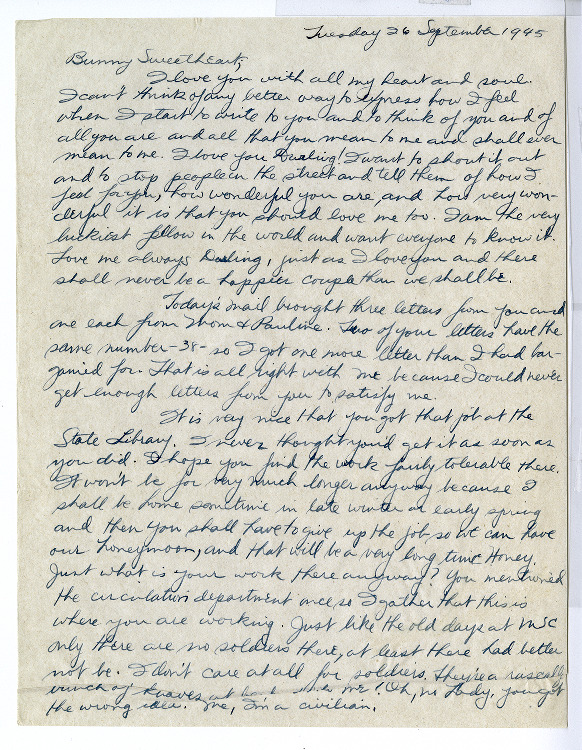 Tuesday 26 September 1945
Bunny Sweetheart,
I love you with all my heart and soul.
I can't think of any better way to express how I feel
when I start to write to you and to think of you and of
all you are and all that you mean to me and shall ever
mean to me. I love you Darling! I want to shout it out
and to stop people in the street and tell them of how I
feel for you, how wonderful you are, and how very won-
derful it is that you should love me too. I am the very
luckiest fellow in the world and want everyone to know it.
Love me always Darling, just as I love you and there
shall never be a happier couple than we shall be.
Today's mail brought three letters from you and
one each from Mom & Pauline. Two of your letters have the
same number -38- so I got one more letter than I had bar-
gained for. That is all right with me because I could never
get enough letters from you to satisfy me.
It is very nice that you got that job at the
State Library. I never thought you'd get it as soon as
you did. I hope you find the work fairly tolerable there.
It won't be for very much longer anyway because I
shall be home sometime in late winter or early spring
and then you shall have to give up the job so we can have
our honeymoon, and that will be a very long time Honey.
Just what is your work there anyway? You mentioned
the circulation department once so I gather that this is
where you are working. Just like the old days at NJC
only there are no soldiers there, at least there had better
not be. I don't care at all for soldiers. They're a rascally
bunch of knaves at me! Oh, no Lady, you got
the wrong idea. Me, I'm a civilian.